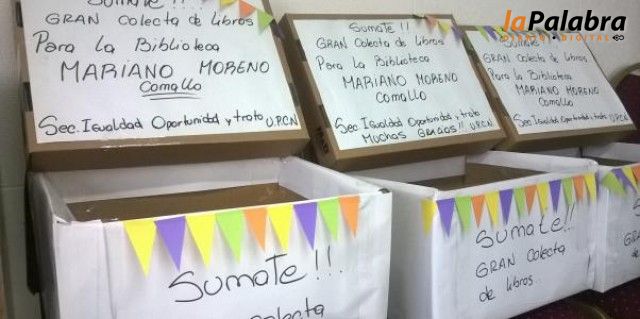 laPalabra
DIARIO DIGITAL
Sumate !!!
GRAN Colecta de Libros
Para la Biblioteca
MARIANO MORENO
Comallo
Sec. Igualdad Oportunidad y trato U.P.C.N
Sumate !!!
GRAN Colecta de Libros
Para la Biblioteca
MARIANO MORENO
Comallo
Sec. Igualdad Oportunidad y trato
MUCHAS GRACIAS!! U.P.C.N
Sumate !!!
GRAN Colecta de Libros
Para la Biblioteca
MARIANO MORENO
Comallo
Sec. Igualdad Oportunidad y trato
MUCHAS GRACIAS!! U.P.C.N
Sumate !!!
Colecta
Sumate!!!
GRAN Colecta
de libros